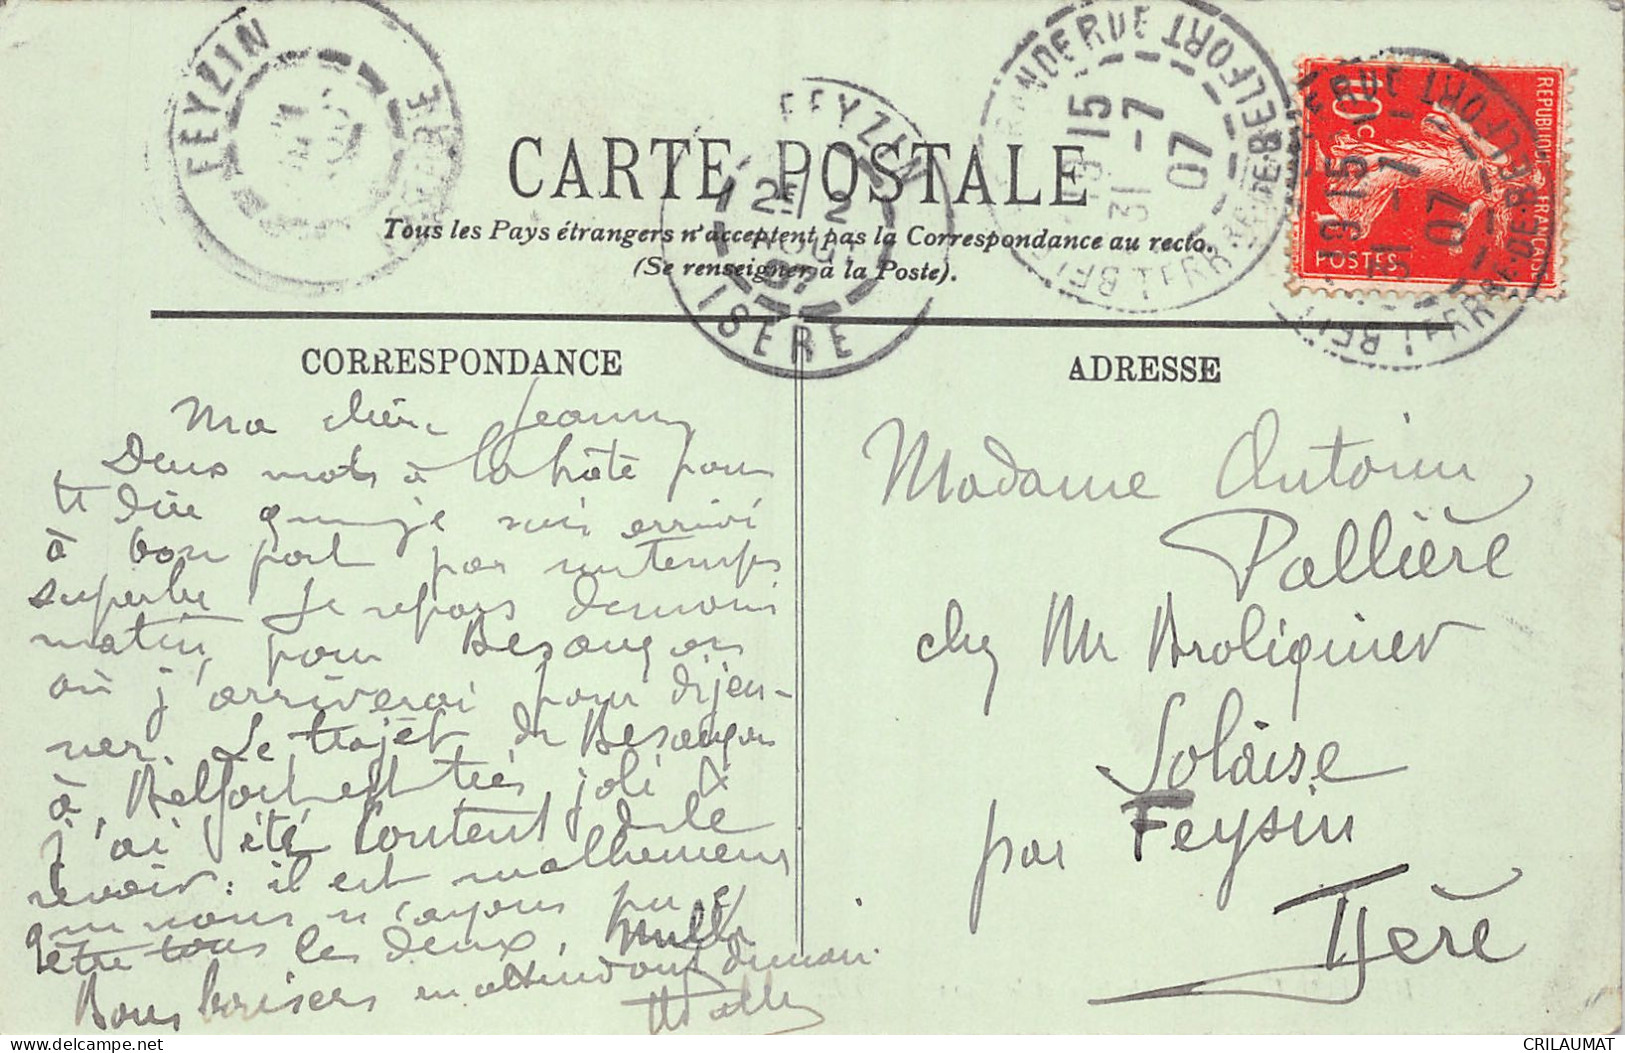 FEYZIN
ISÈRE
FEYZIN
2E / 2
07
ISÈRE
GRANDE RUE BELFORT
19 15
31 - 7
07
TERRRE DE BELFORT
REPUBLIQUE FRANÇAISE
10c
POSTES
CARTE POSTALE
Tous les Pays étrangers n'acceptent pas la Correspondance au recto.
(Se renseigner à la Poste).
CORRESPONDANCE
Ma chère Jeanny
Deux mots à la hâte pour
te dire que je suis arrivé
à bon port par un temps
superbe Je repars demain
matin, pour Besançon
où j'arriverai pour déjeu-
ner. Le trajet de Besançon
à Belfort est très joli &
j'ai été content de le
revoir : il est malheureux
que nous n'ayons pu y
être tous les deux.
Bons baisers en attendant demain.
ADRESSE
Madame Antoine
Pallière
chez Mr Broliquier
Solaise
par Feysin
Isère
CRILAUMAT